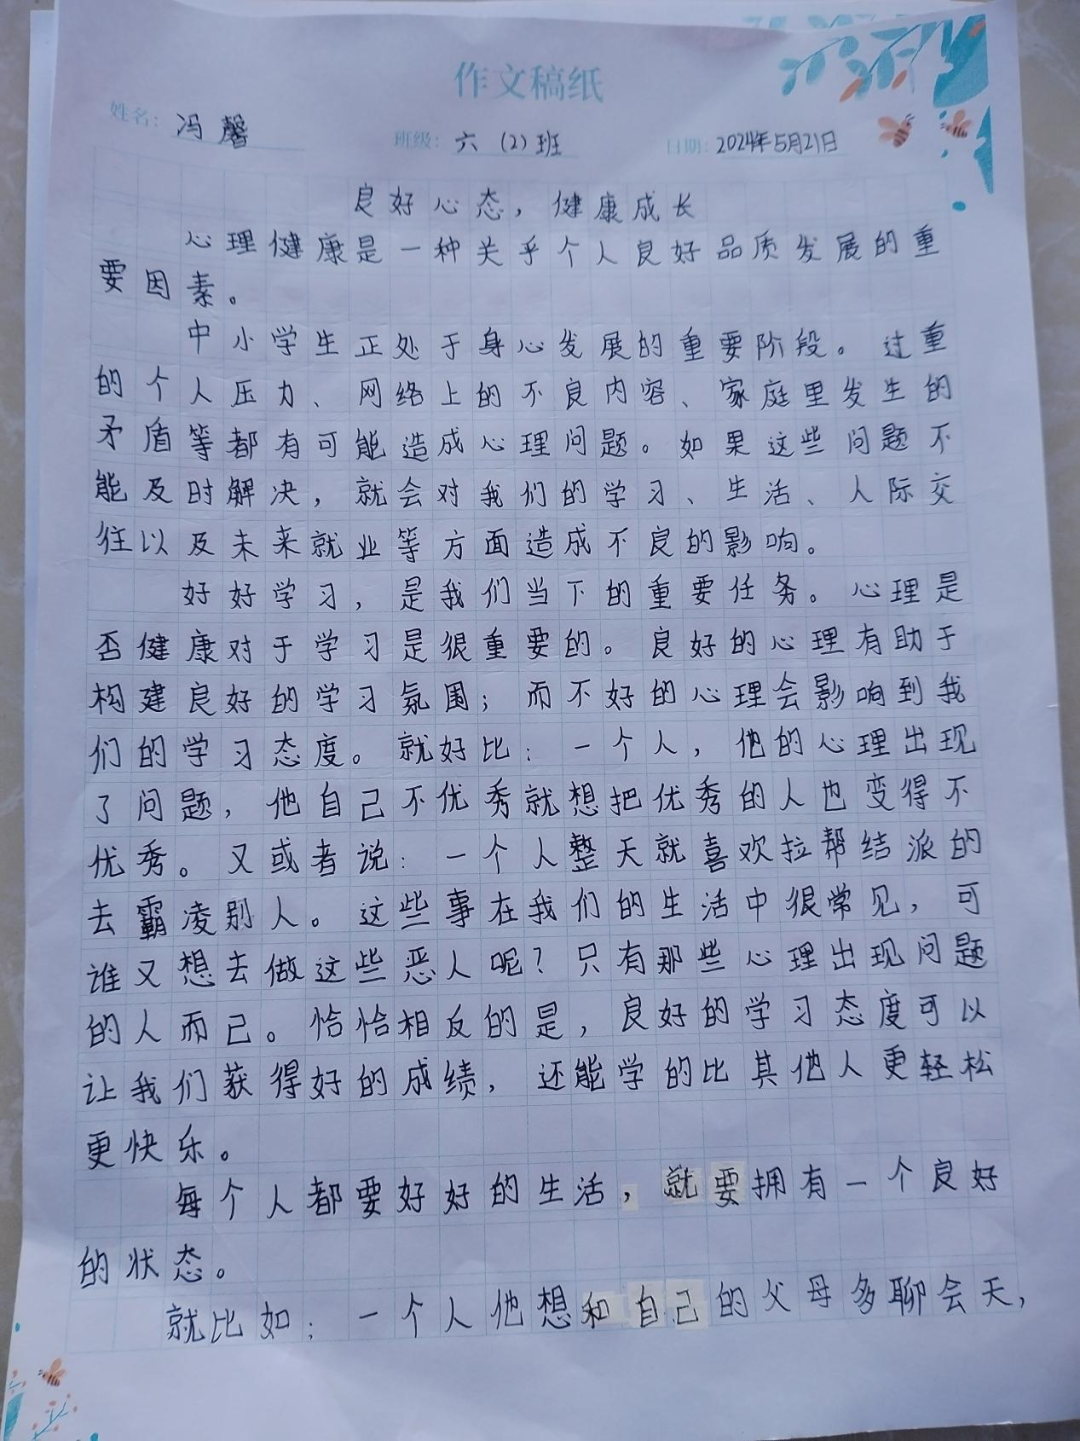 作文稿纸
姓名：冯馨 班级：六（2）班 日期：2024年5月21日
良好心态，健康成长
心理健康是一种关乎个人良好品质发展的重
要因素。
中小学生正处于身心发展的重要阶段。过重
的个人压力、网络上的不良内容、家庭里发生的
矛盾等都有可能造成心理问题。如果这些问题不
能及时解决，就会对我们的学习、生活、人际交
往以及未来就业等方面造成不良的影响。
好好学习，是我们当下的重要任务。心理是
否健康对于学习是很重要的。良好的心理有助于
构建良好的学习氛围；而不好的心理会影响到我
们的学习态度。就好比：一个人，他的心理出现
了问题，他自己不优秀就想把优秀的人也变得不
优秀。又或者说：一个人整天就喜欢拉帮结派的
去霸凌别人。这些事在我们的生活中很常见，可
谁又想去做这些恶人呢？只有那些心理出现问题
的人而已。恰恰相反的是，良好的学习态度可以
让我们获得好的成绩，还能学的比其他人更轻松
更快乐。
每个人都要好好的生活，就要拥有一个良好
的状态。
就比如：一个人他想和自己的父母多聊会天，